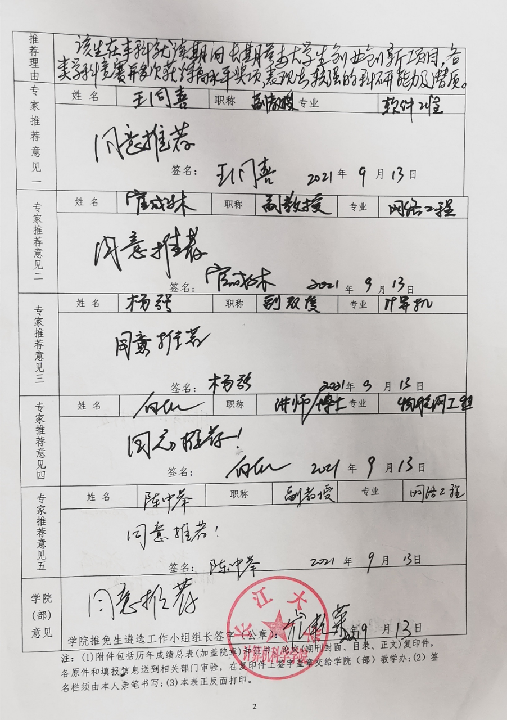 推荐理由
该生在本科就读期间长期参与大学生创业创新项目,各
类学科竞赛并多次获得高水平奖项,表现出较强的科研能力及潜质。
专家推荐意见一
姓名 王同喜 职称 副教授 专业 软件工程
同意推荐
签名: 王同喜 2021年9月13日
专家推荐意见二
姓名 职称 副教授 专业 网络工程
同意推荐
签名: 2021年9月13日
专家推荐意见三
姓名 杨强 职称 副教授 专业 计算机
同意推荐
签名: 杨强 2021年9月13日
专家推荐意见四
姓名 职称 讲师/博士 专业 物联网工程
同意推荐!
签名: 2021年9月13日
专家推荐意见五
姓名 陈中举 职称 副教授 专业 网络工程
同意推荐!
签名: 陈中举 2021年9月13日
学院(部)意见
同意推荐
学院推免生遴选工作小组组长签字(公章): 9月13日
长江大
计算机科学学院
注:(1)附件包括历年成绩总表(加盖院章)(期刊封面、目录、正文)复印件,
各原件和填报信息送到相关部门审验,在复印件上签字盖章交给学院(部)教学办;(2)签
名栏须由本人亲笔书写;(3)本表正反面打印。
2